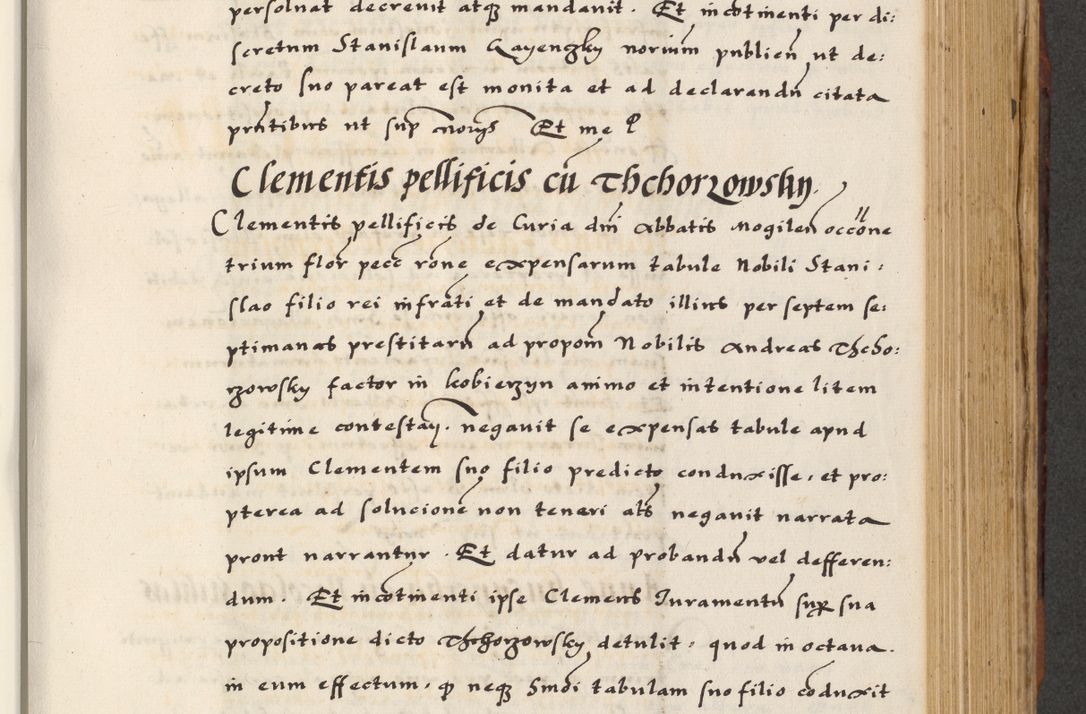 persolvat decrevit atq mandavit. Et incotinenti per di:
scretum Stanislaum Gayenczky norium publicu ut de:
creto suo pareat est monita et ad declarandu citata
pntibus ut sup Et me
Clementis pellificis cu Thchorzowsky.
Clementis pellificis de Curia dni Abbatis Mogilen occone
trium flor pecc rone expensarum tabule Nobili Stani:
slao filio rei infrati et de mandato illius per septem se:
ptimanas prestitaru ad propom Nobilis Andreas Thcho:
rzowsky factor in kobierzyn animo et intentione litem
legitime contestan. negavit se expensas tabule apud
ipsum Clementem suo filio predicto conduxisse, et pro:
pterea ad solucione non teneri als negavit narrata
prout narrantur. Et datur ad probandu vel defferen:
dum. Et incotinenti ipse Clemens Iuramentu sup sua
propositione dicto Thchorzowsky detulit, quod in octava.
in eum effectum, q neq Smdi tabulam suo filio coduxit